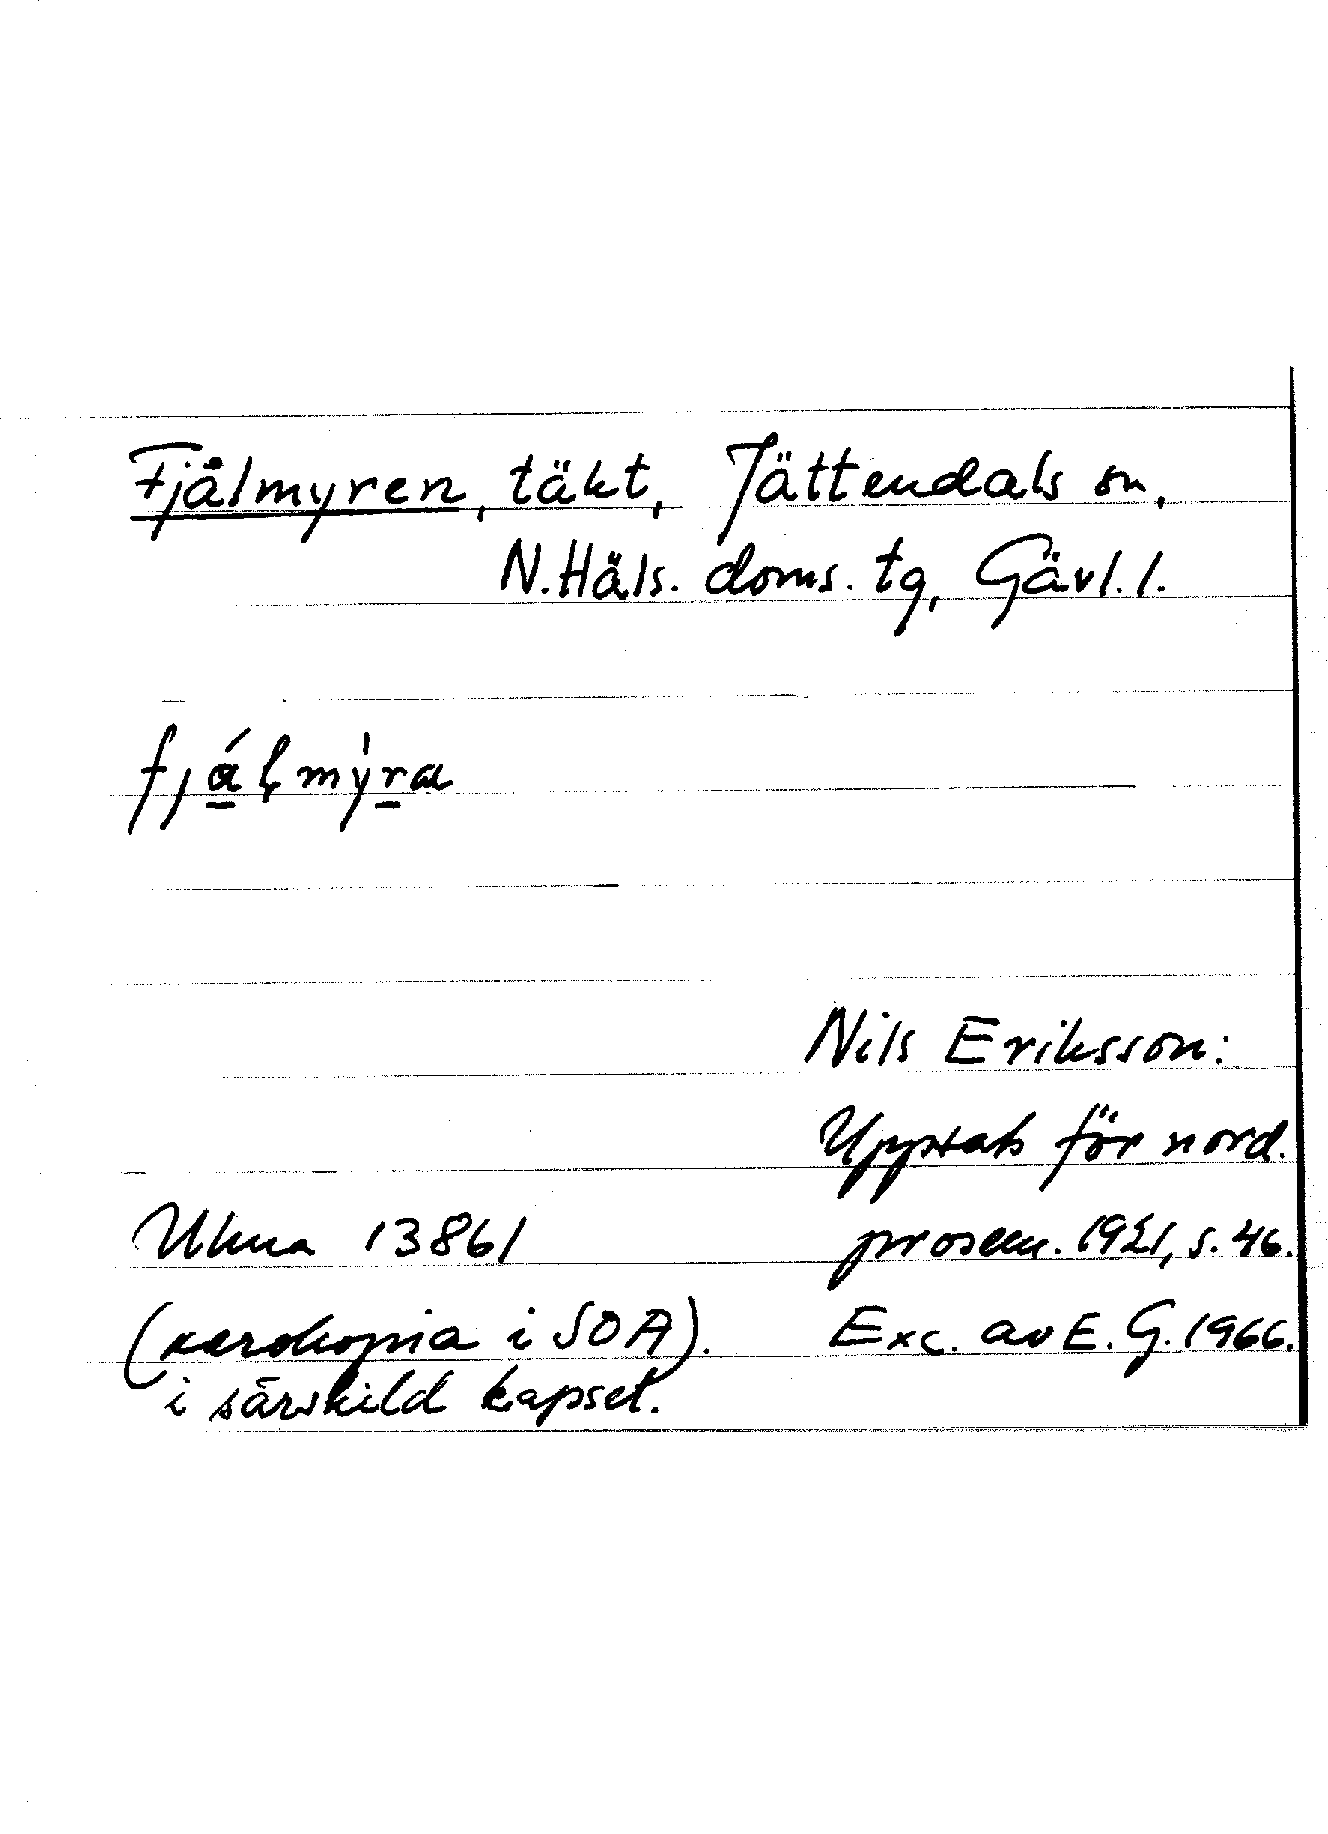 Fjålmyren, täkt, Jättendals sn,
N. Häls. doms. tg, Gävl. l.
fjálmy̍ra
Nils Eriksson:
Uppsats för nord.
Ulma 13861
prosem. 1921, s. 46.
(xerokopia i SOA).
Exc. av E. G. 1966.
i särskild kapsel.